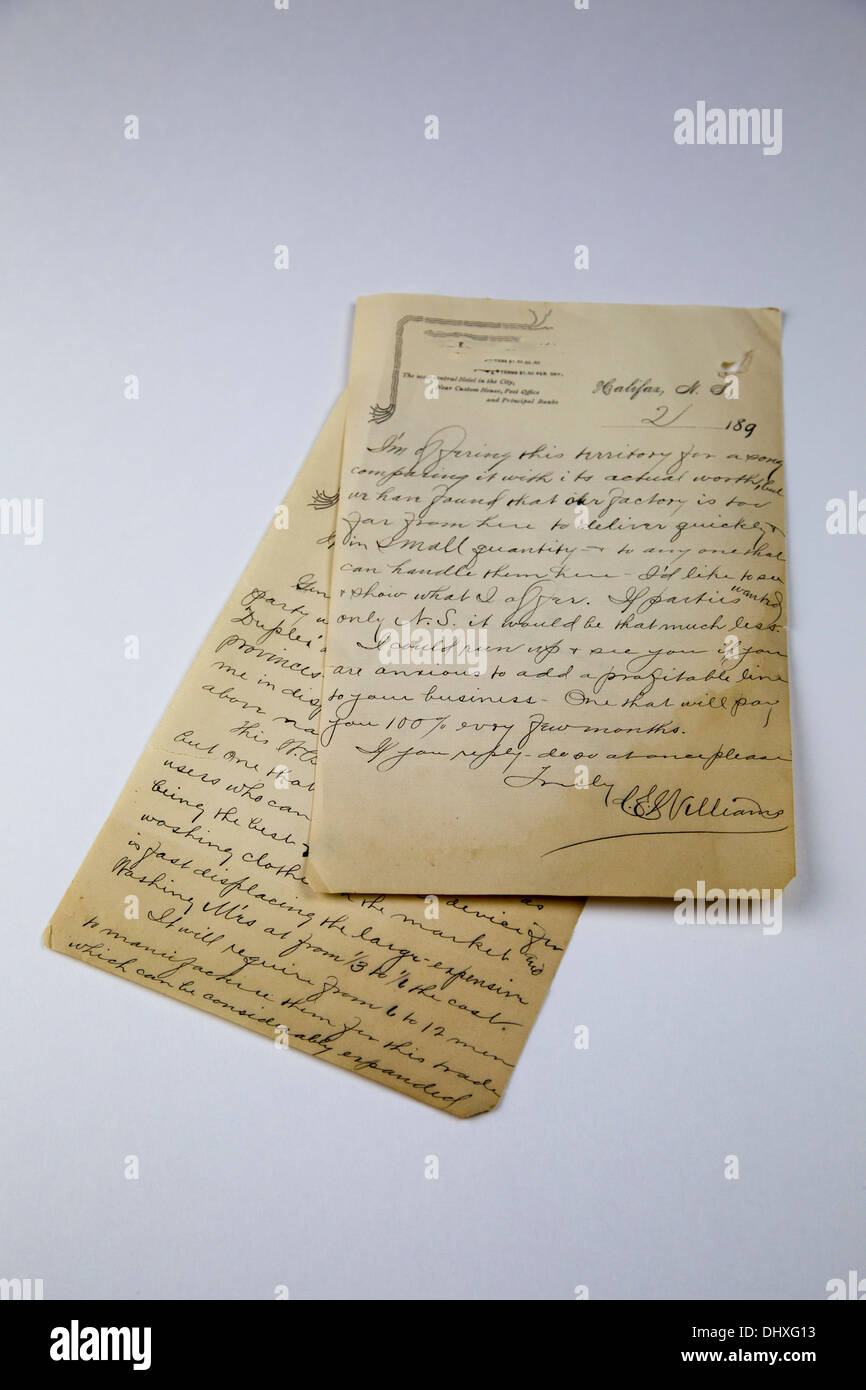 TERMS $1.50 PER DAY.
The most Central Hotel in the City,
Near Custom House, Post Office
and Principal Banks
Halifax, N. S.
2) 189
I'm offering this territory for a song
comparing it with its actual worth, but
we have found that our factory is too
far from here to deliver quickly +
in small quantity - + to any one that
can handle them here - I'd like to see
+ show what I offer. If parties wanted
only N.S. it would be that much less.
I could run up + see you if you
are anxious to add a profitable line
to your business - One that will pay
you 100% every few months.
If you reply - do so at once please
Truly
C.E. Williams
Gen
party
Duplex
provinces
me in disp
above na
This
but one that
users who can
being the best as
washing clothe the market device for
is fast displacing the large expensive and
Washing M'rs at from 1/3 to 1/6 the cost.
It will require from 6 to 12 men
to manufacture them for this trade
which can be considerably expanded
alamy
Image ID: DHXG13
www.alamy.com